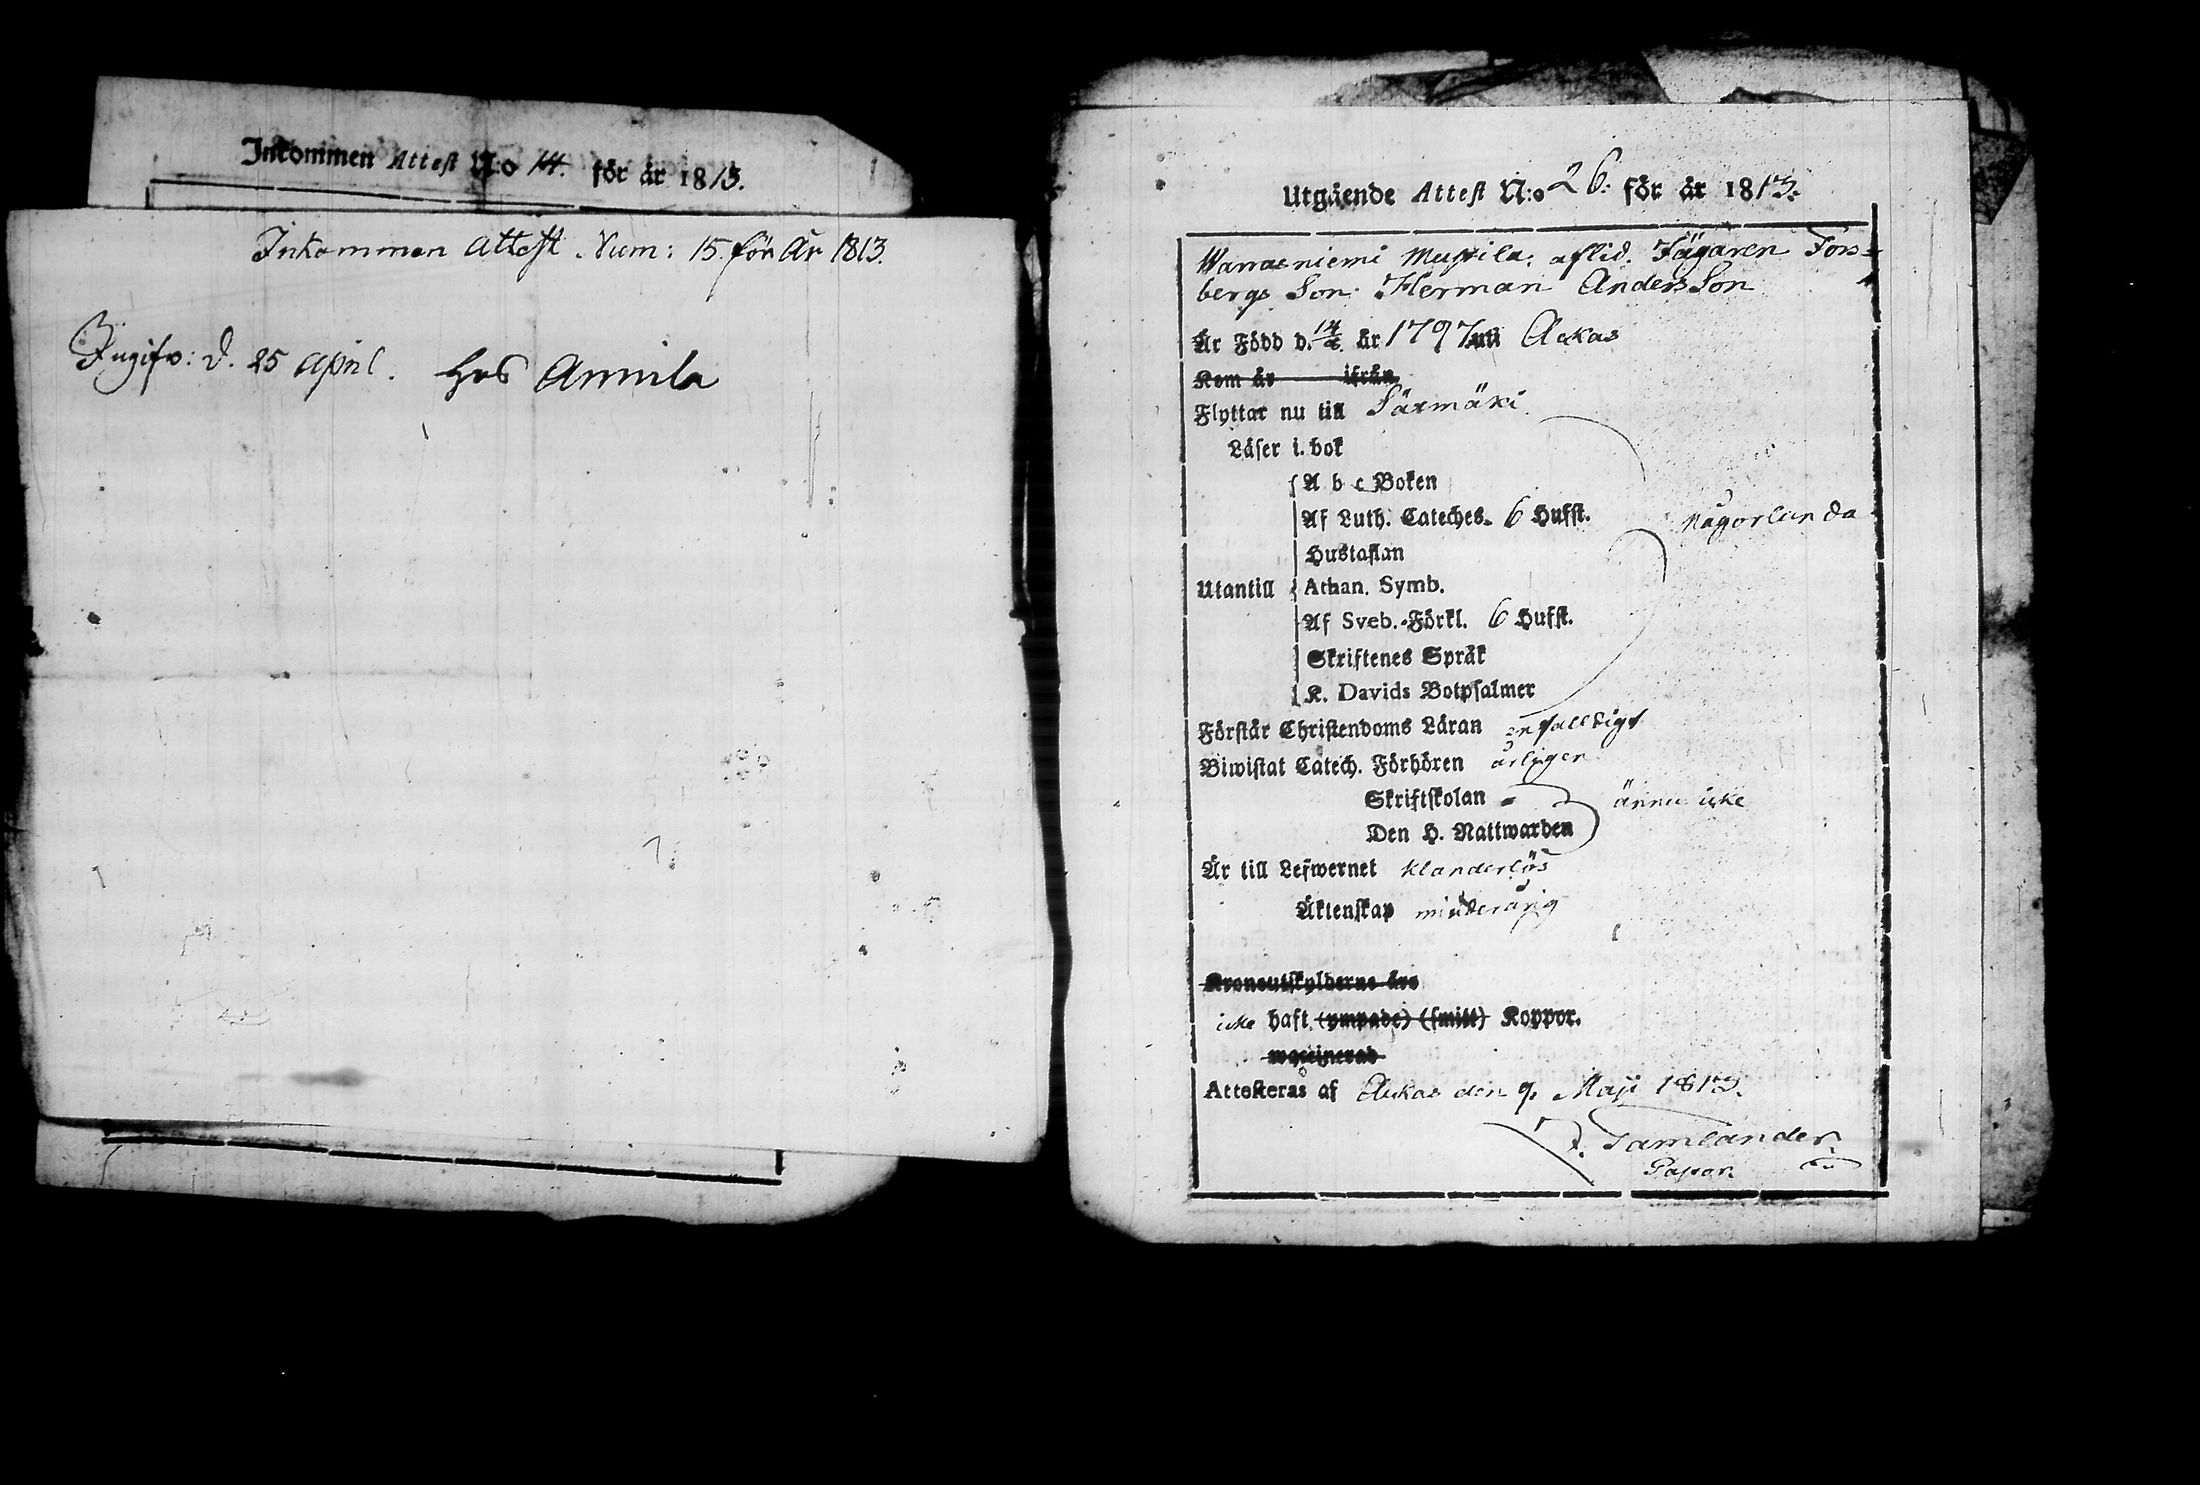 Inkommen Attest N:o 14. för år 1813.
Inkommen Attest. Num: 15. för År 1813.
Ingifv: d. 25 April. hos Annila
Utgående Attest N:o 26. för år 1813.
Mustila. aflid. Jägaren Fors=
bergs Son. Herman Anders Son
År Född d. 14 år 1797 uti Ackas
Kom år ifrån
Flyttar nu till Särmäki
Läser i. bok
A b c Boken
Af Luth. Cateches. 6 Hufst. någorlunda
Hustaflan
Utantill Athan. Symb.
Af Sveb. Förkl. 6 Hufst.
Skriftenes Språk
K. Davids Botpsalmer
Förstår Christendoms Läran enfalldigt
Biwistat Catech. Förhören årligen
Skriftskolan ännu icke
Den H. Nattwarden
Är till Lefwernet klanderlös
Äktenskap minderårig
Kronoutskylderne äro
icke haft (ympade) (smitt) Koppor.
waccinerad
Attesteras af Ackas den 9. Maji 1813.
Tamlander
Pastor